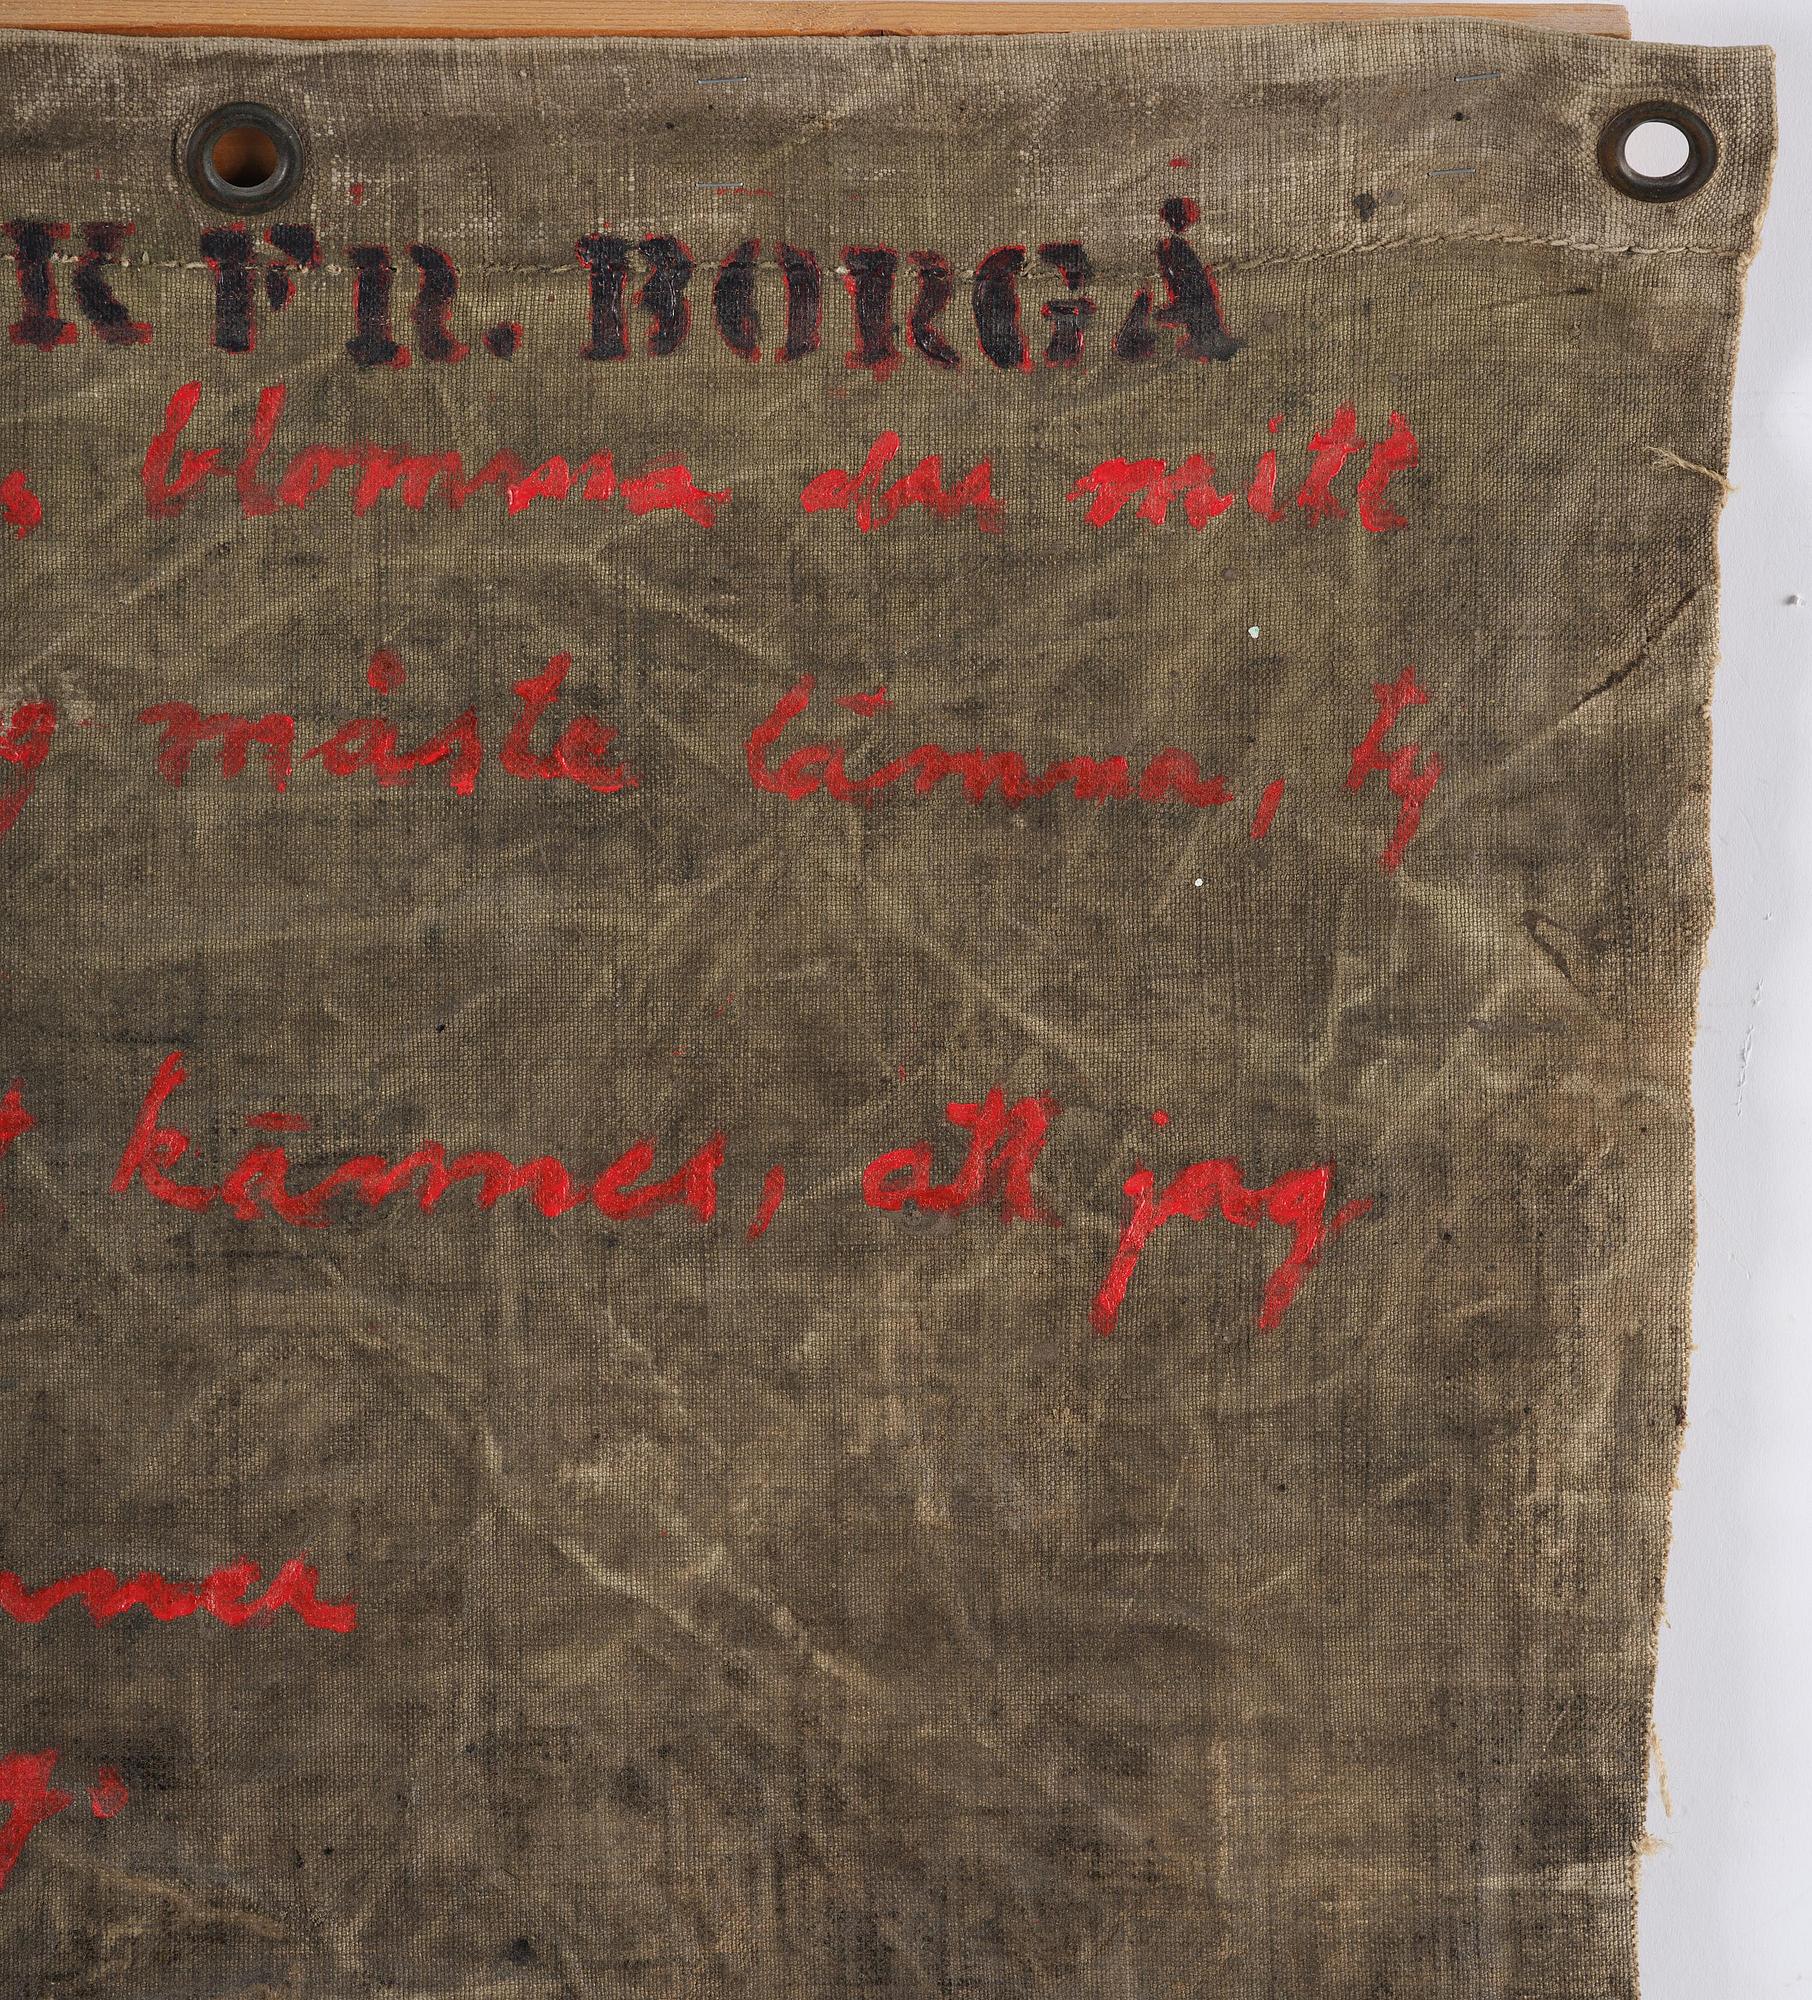 K FR. BORGÅ
blomma du mitt
måste lämna, ty
kännes, att jag